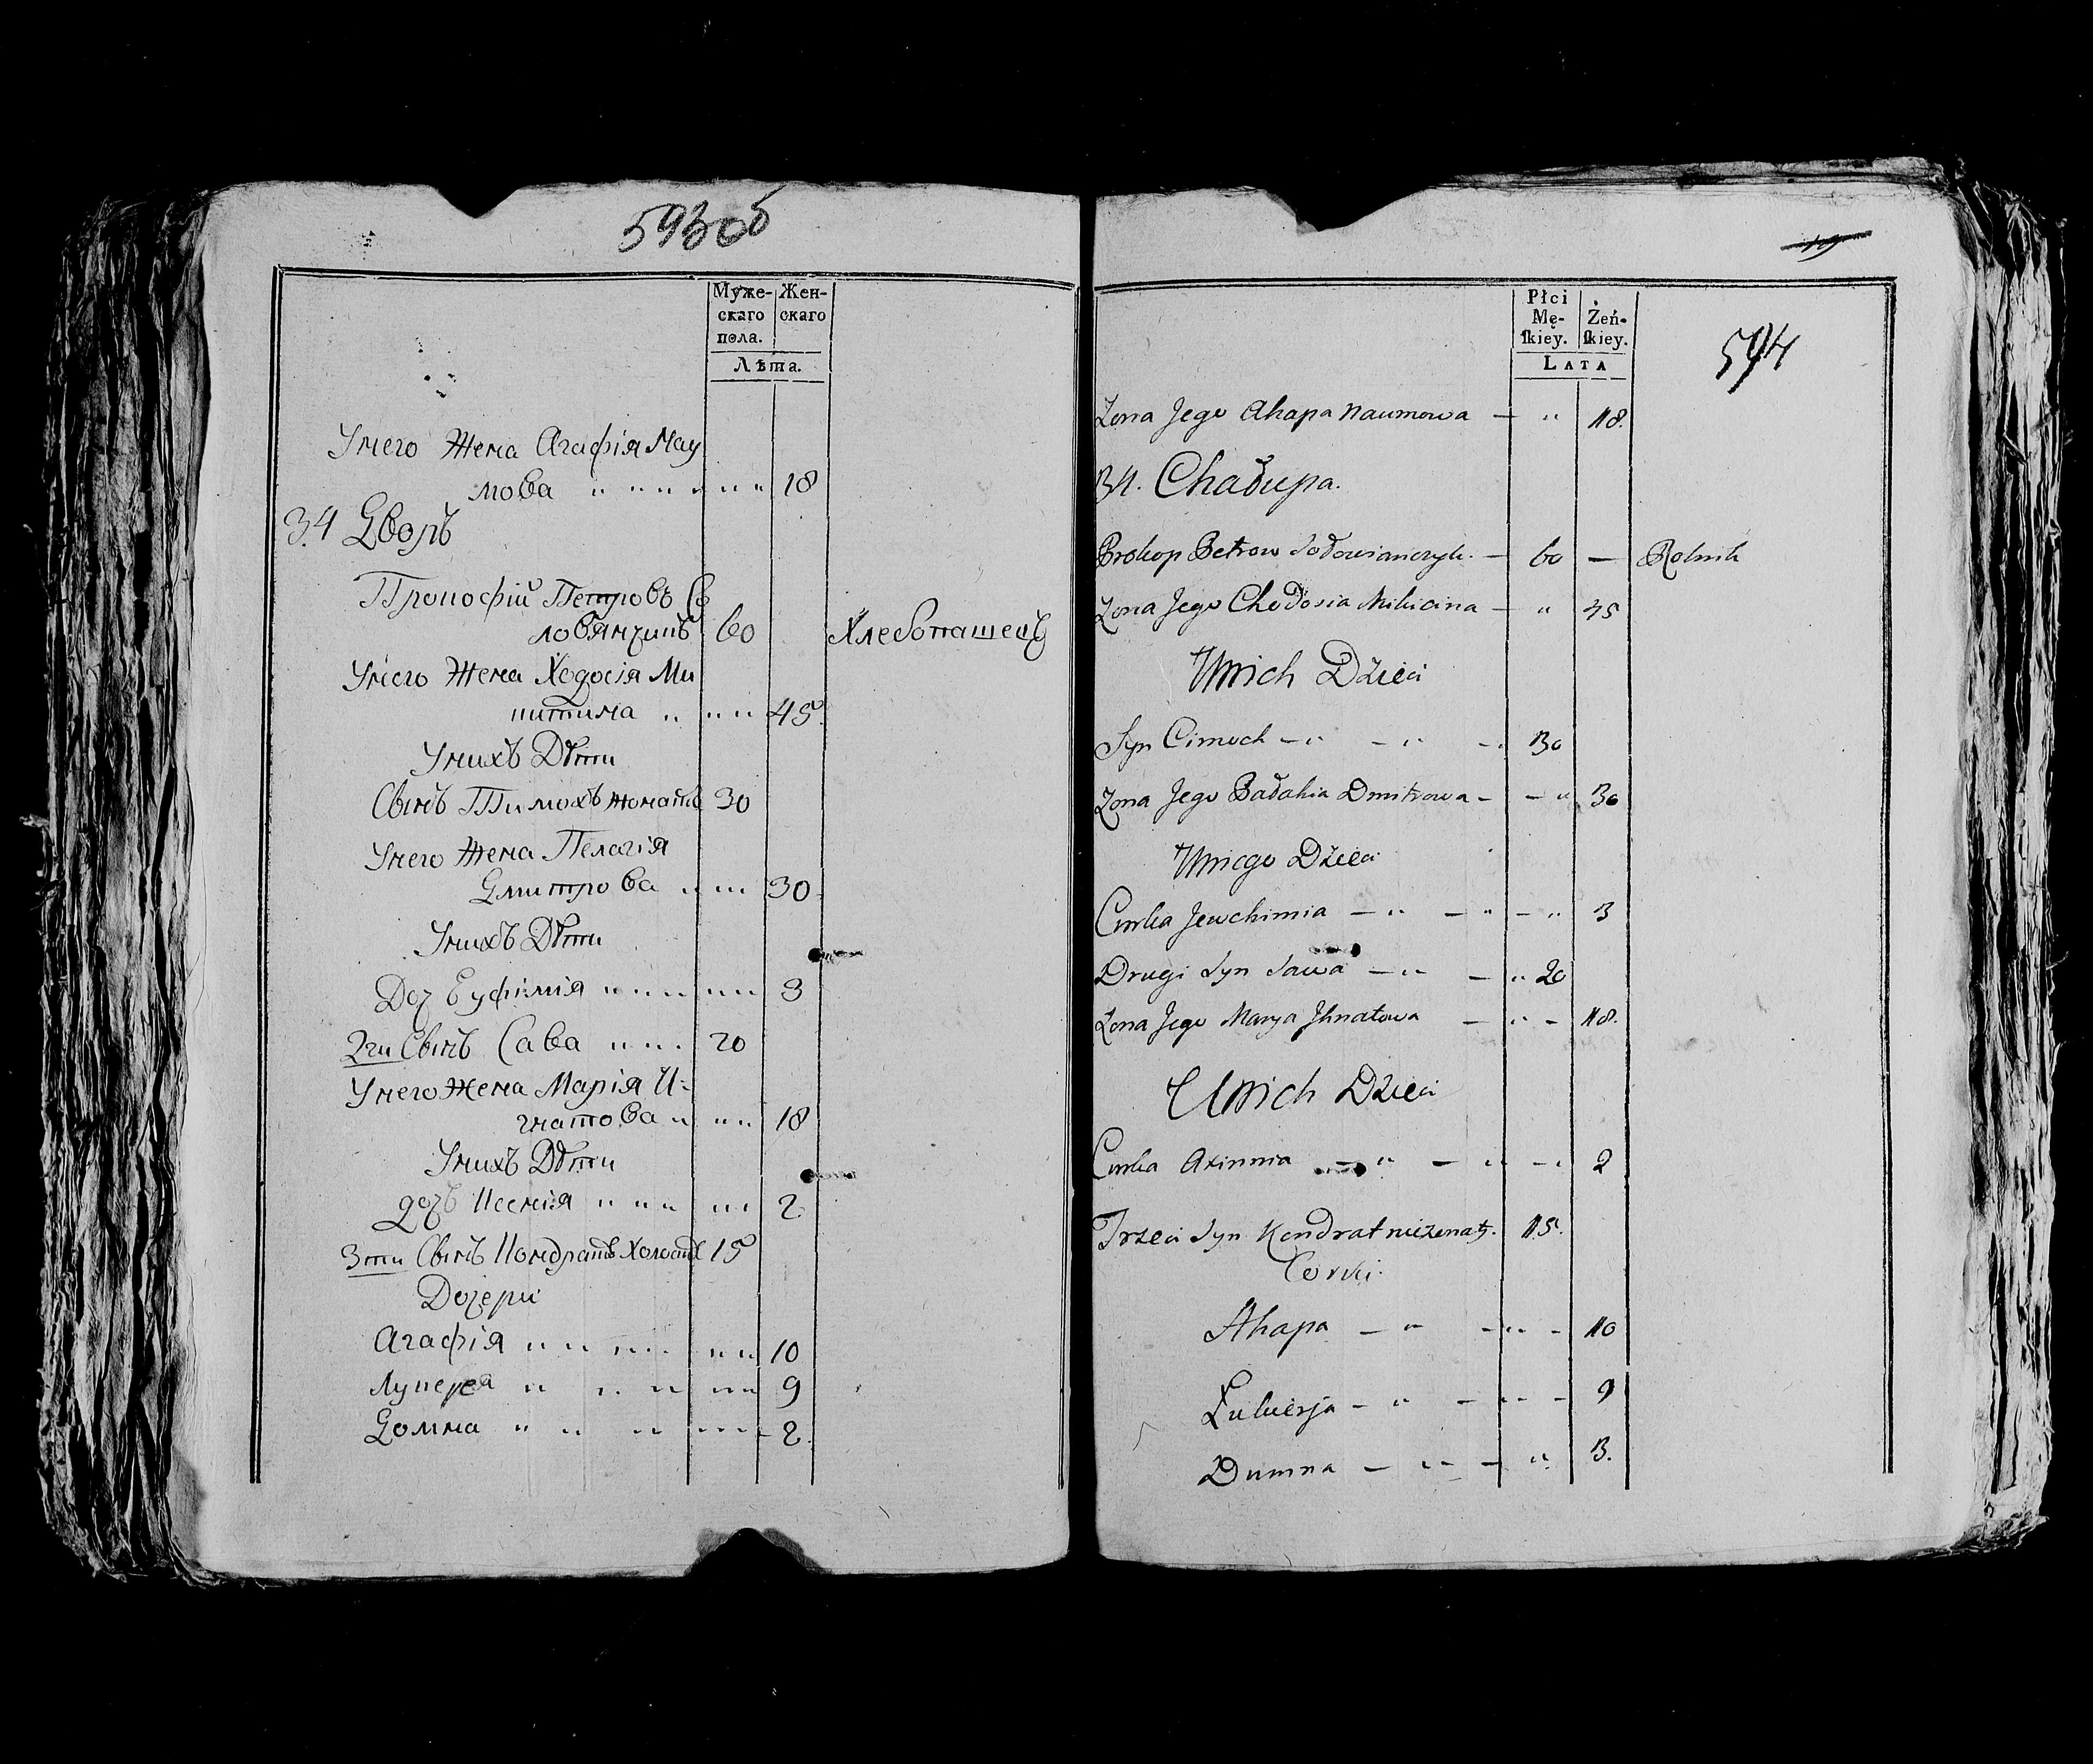 593об
Муже-
скаго
пола.
Жен-
скаго
Лѣта.
Унего Жена Агафія Нау
мова 18
34 Дворъ
Прокофій Петровъ Со
ловянчикъ 60 Хлебопашецъ
Унего Жена Ходосія Ми
китина 45
Унихъ Дѣти
Сынъ Тимохъ женатъ 30
Унего Жена Пелагія
Дмитрова 30
Унихъ Дѣти
Доч Еуфимія 3
2гй Сынъ Сава 20
Унего Жена Марія И-
гнатова 18
Унихъ Дѣти
дочъ Ксенія 2
3тій Сынъ Кондратъ Холостъ 15
Дочери
Агафія 10
Лукеря 9
Домна 2
19
594
Płci
Mę-
ſkiey.
Żeń-
ſkiey.
LATA
Zona Jego Ahapa Naumowa — " 18.
34. Chałupa.
Prokop Petrow Sołowianczyk — 60 — Rolnik
Zona Jego Chodosia Mikicina — " 45
Unich Dzieci
Syn Cimoch — " — " 30
Zona Jego Pałahia Dmitrowa — — " 30
Uniego Dzieci
Curka Jewchimia — " — " — " 3
Drugi Syn Sawa — " — " 20
Zona Jego Marya Jhnatowa — " — 18.
Unich Dzieci
Curka Axinnia — " — " — " 2
Trzeci Syn Kondrat nieżenaty. 15.
Corki.
Ahapa — " — " — 10
Łukierja — " — " — 9
Dumna — " — " 3.